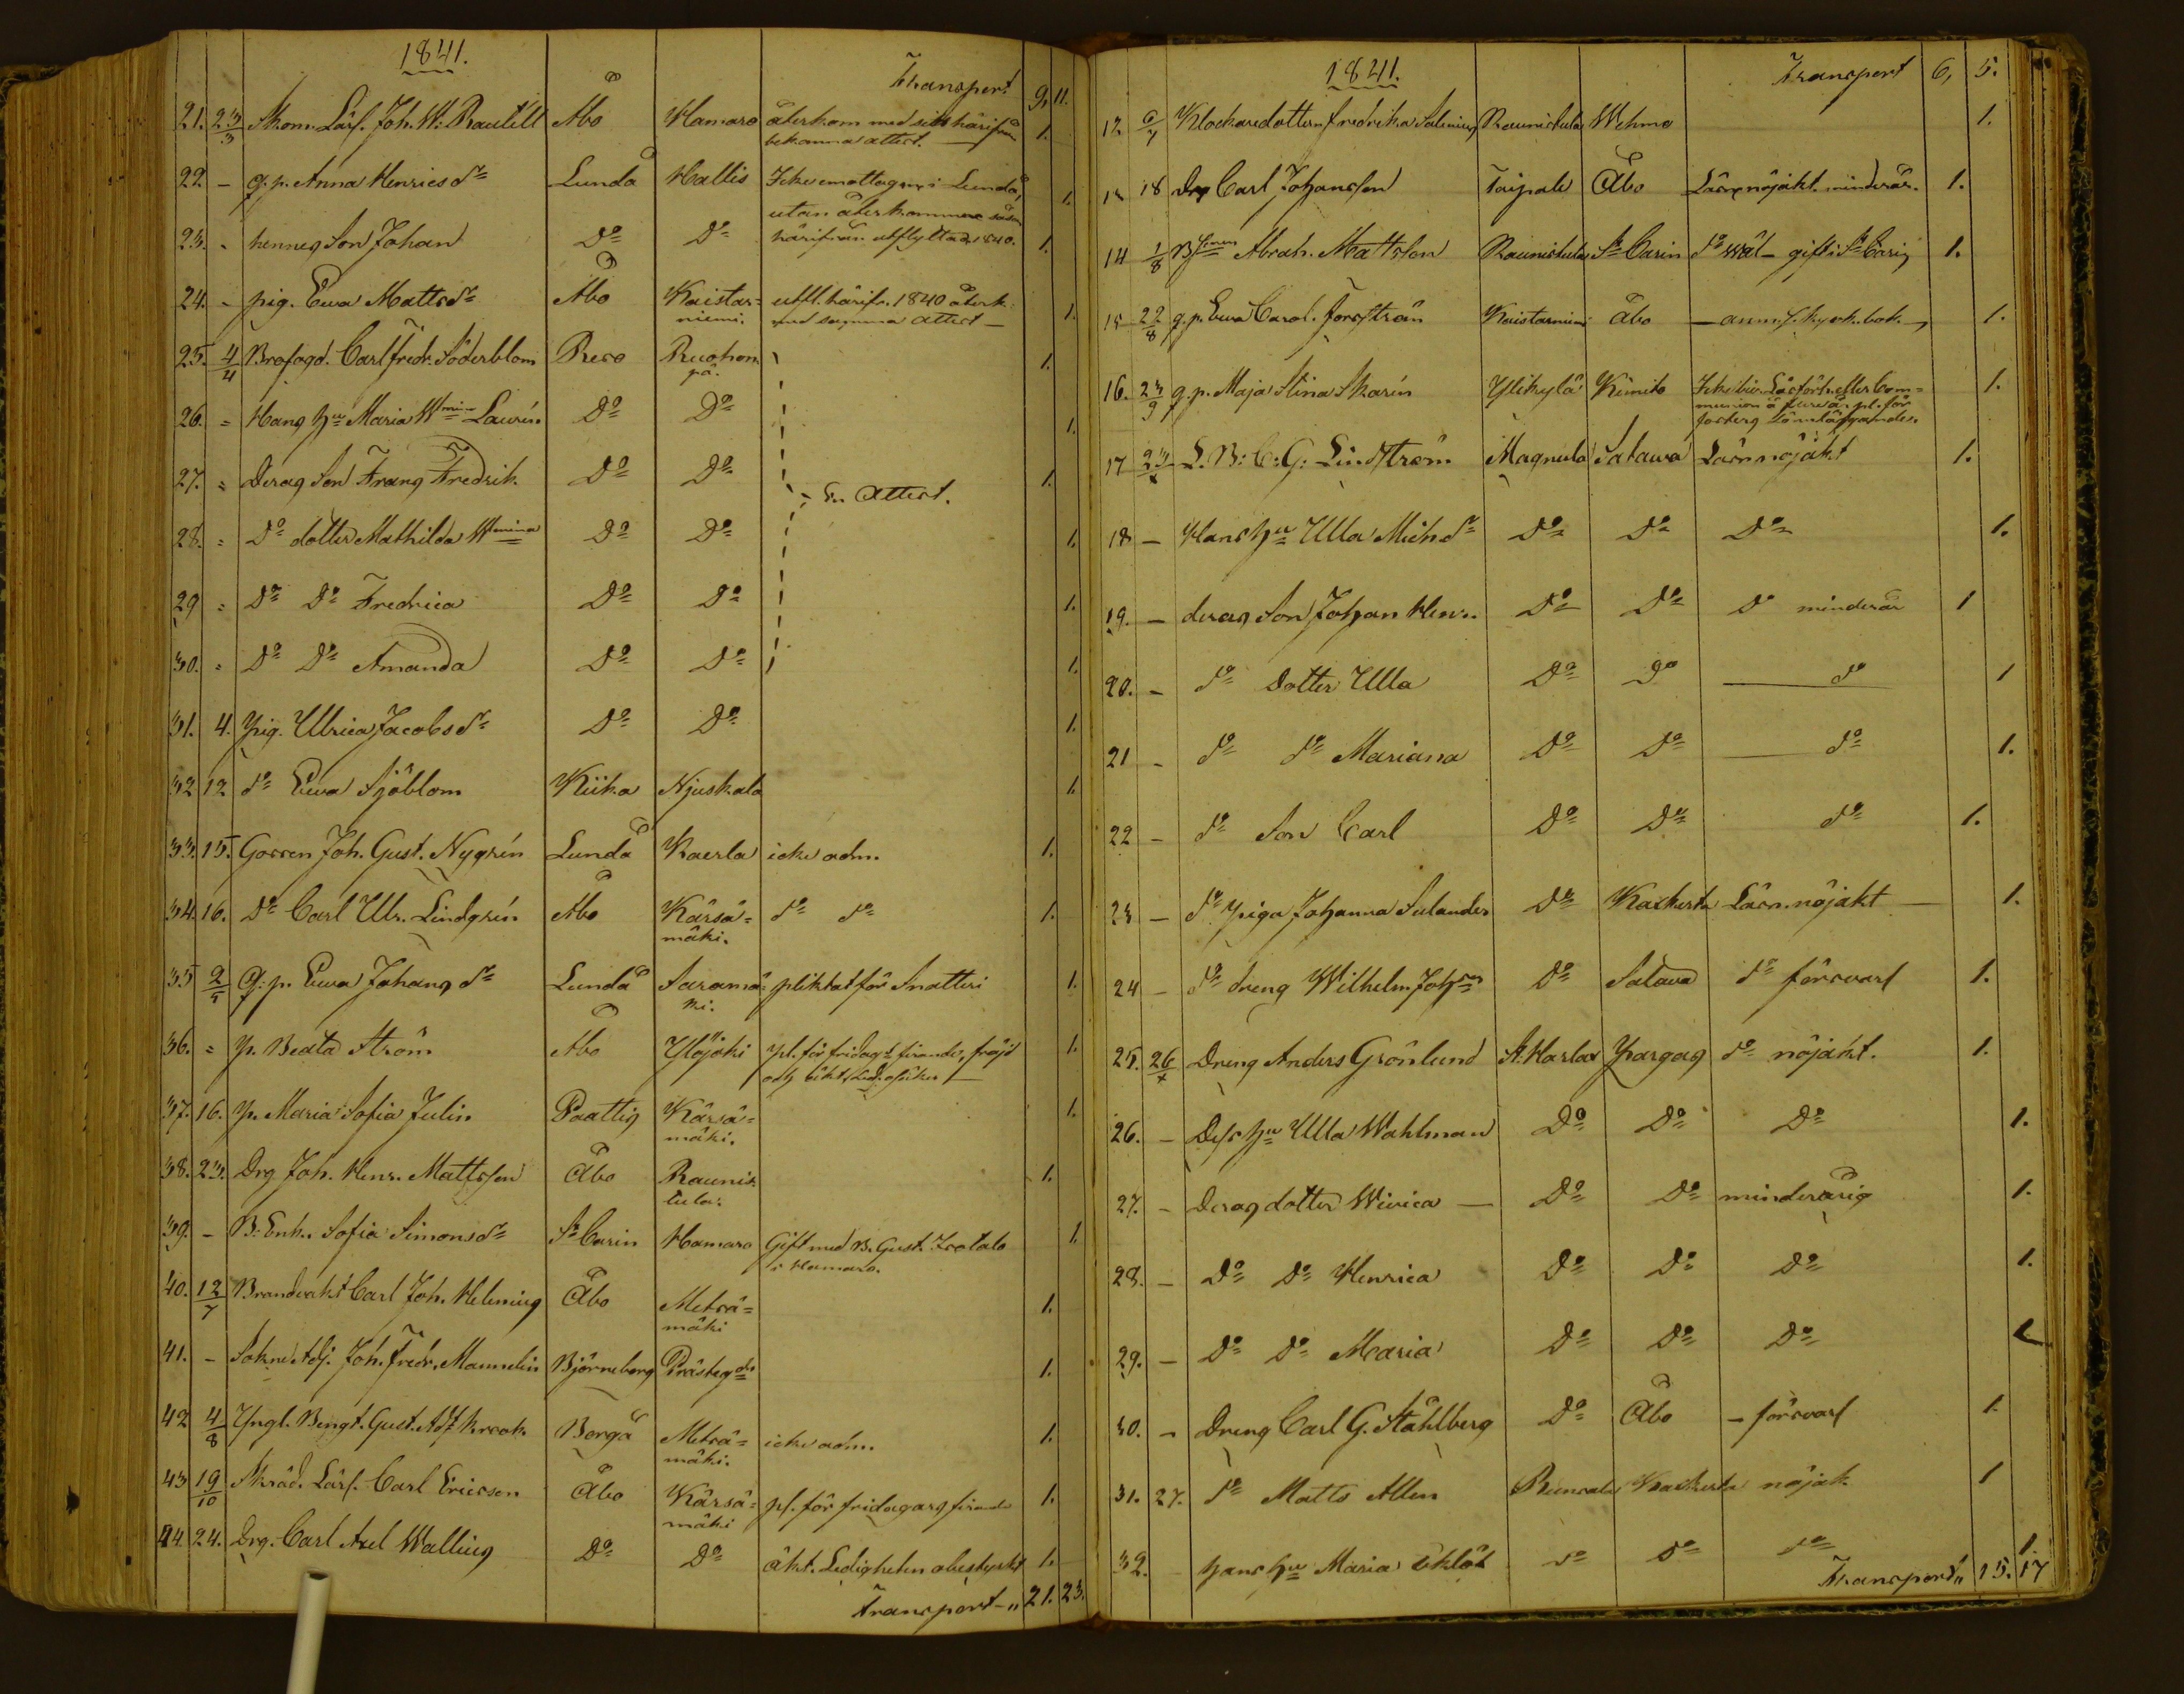 1841.
Transport 9. 11.
21. 23/3 Skom. Lärl. Joh. W: Rautell Åbo Hamaro återkom med sitt härifrån 1.
bekomna attest.
22 - q.p. Anna Henricsdr Lunda Hallis Icke emottagen i Lundå, 1.
utan återkommen sedan
23. - hennes Son Johan Do Do härifrån utflyttad 1840. 1.
24. - pig. Ewa Mattsdr Åbo Kaistar= utfl. härifr. 1840 återk. 1.
niemi. med samma attest -
25. 4/4 Brofogd. Carl Fredr. Söderblom Reso Ruohon 1.
pä.
26. = Hans hu Maria Wmina Laurén Do Do 1.
27. = Deras Son Frans Fredrik Do Do 1.
En Attest.
28. = Do dotter Mathilda Wmina Do Do 1.
29 = Do Do Fredrica Do Do 1.
30. = Do Do Amanda Do Do 1.
31. 4. Pig. Ulrica Jacobsdr Do Do 1.
32 12 do Ewa Sjöblom Kiika Njuskala 1.
33. 15. Gossen Joh. Gust. Nygrén Lundå Kaerla icke adm. 1.
34. 16. Do Carl Ulr. Lindgrén Åbo Kärsä= do do 1.
mäki.
35 2/5 Q:p. Ewa Johansdr Lundå Saramä= pliktat för Snatteri 1.
ki.
36. = P. Beata Ström Åbo Ylöjoki Pl. för fridags firande, fräjd 1.
och äkt. Led. osäker
37. 16. P. Maria Sofia Julin Paattis Kärsä= 1.
mäki.
38. 23. Drg Joh. Henr. Mattsson Åbo Raunis 1.
tula.
39. - B. Enk. Sofia Simonsdr St Carin Hamaro Gift med B. Gust. Isotalo 1.
i Hamaro.
40. 12/7 Brandvakt Carl Joh. Helenius Åbo Metsä= 1.
mäki
41. - Sokne Adj. Joh. Fredr. Mannelin Björneborg Prästegdn 1.
42 4/8 Yngl. Bengt. Gust. Adf Krook Borgå Metsä= icke adm. 1.
mäki.
43 19/10 Skräd. Lärl. Carl Ericson Åbo Kärsä= pl. för fridagars firande 1.
mäki
44. 24. Drg. Carl Axel Wallius Do Do äkt. Ledigheten obestyrkt 1.
Transport " 21. 23.
1841.
Transport 6, 5.
12. 6/7 Klockaredottern Fredrika Salenius Raunistula Wehmo 1.
13 18 Drg Carl Johansson Taipale Åbo Läsn. nöjakt. minderår. 1.
14 1/8 Abrah. Mattsson Raunistula St Carin do wäl - gift i St Carin 1.
15 22/8 q.p. Ewa Carol. Forsström Kaistarniemi Åbo - kyrk. bok. - 1.
16. 23/9 q.p. Maja Stina Skarin Ylikylä Kimito Icke bivist. Läsförh. eller Com= 1.
munion å flere år. pl. för
17 23/x L. B: C: G: Lindström Magnula Satawa Läsn. nöjakt 1.
18 - Hans hu Ulla Michsdr Do Do Do 1.
19. - deras Son Johan Henr. Do Do Do minderår 1
20. - do Dotter Ulla Do Do do 1
21 - do do Mariana Do Do do 1.
22 - do Son Carl Do Do do 1.
23 - do Piga Johanna Salander Do Kakserta Läsn. nöjakt 1.
24 - do dreng Wilhelm Johsson Do Satava do försvarl 1.
25. 26/x Dreng Anders Grönlund St. Harlax Pargas do nöjakt. 1.
26. - Dess hu Ulla Wahlman Do Do Do 1.
27. - Deras dotter Wivica - Do Do minderårig 1.
28. - Do Do Henrica Do Do Do 1.
29. - Do Do Maria Do Do Do 1
30. - Dreng Carl G. Ståhlberg Do Åbo - försvarl 1.
31. 27. do Matts Allen Runsala Kakserta nöjak. 1
32. hans hu Maria do do do 1.
Transport " 15. 17